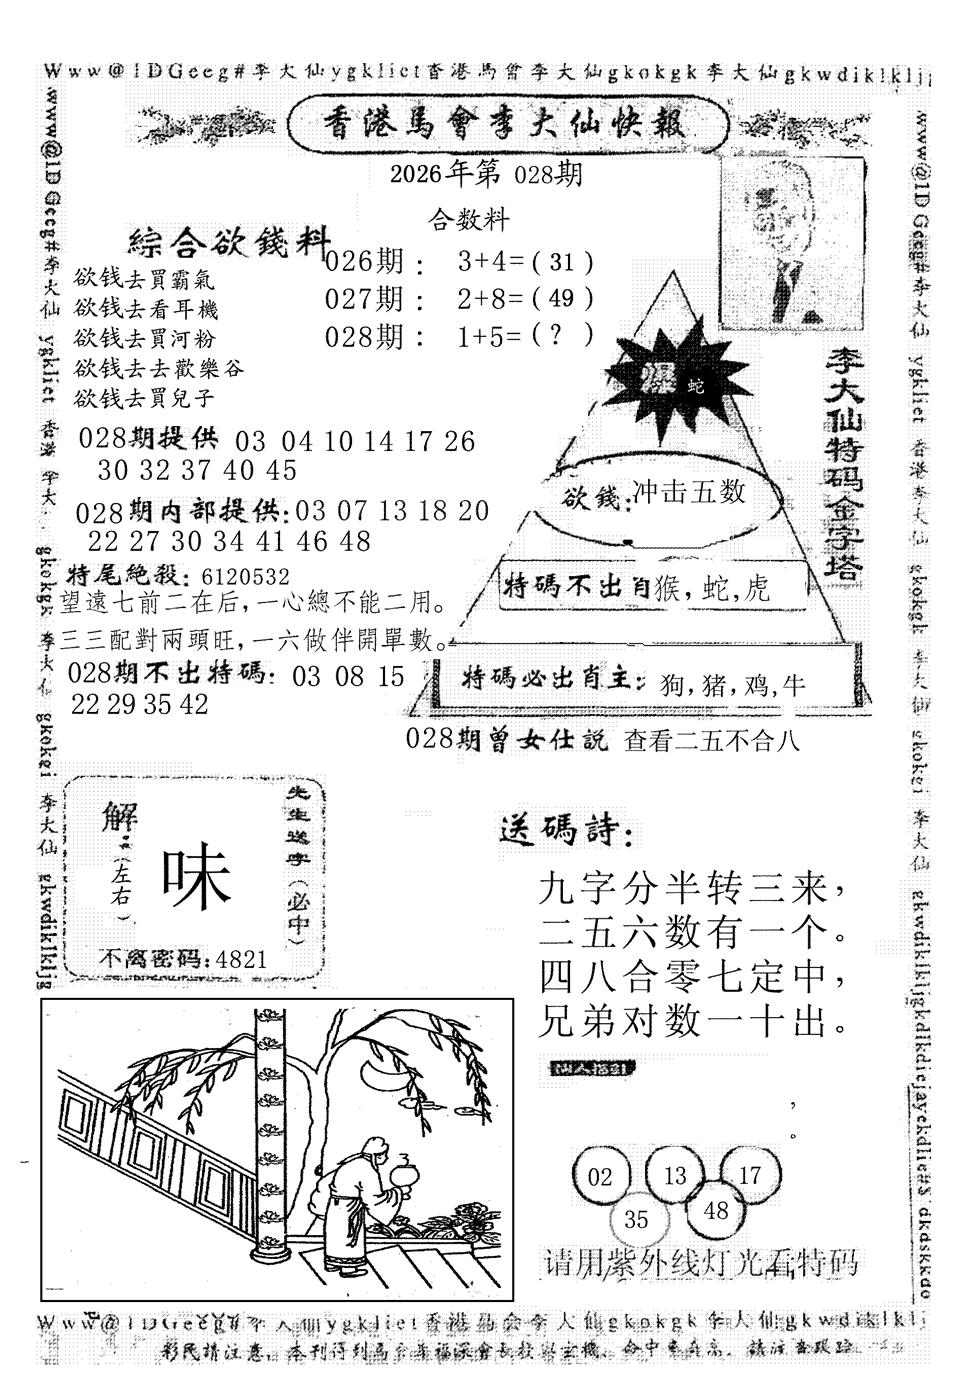 Www@1DGeeg#李大仙ygkliet香港馬會李大仙gkokgk李大仙gkwdiklklj
香港馬會李大仙快報
2026年第 028期
合数料
綜合欲錢料
欲钱去買霸氣
欲钱去看耳機
欲钱去買河粉
欲钱去去歡樂谷
欲钱去買兒子
026期： 3+4=( 31 )
027期： 2+8=( 49 )
028期： 1+5=( ? )
028期提供 03 04 10 14 17 26
30 32 37 40 45
028期内部提供:03 07 13 18 20
22 27 30 34 41 46 48
特尾絶殺: 6120532
望遠七前二在后，一心總不能二用。
三三配對兩頭旺，一六做伴開單數。
028期不出特碼: 03 08 15
22 29 35 42
爆 蛇
欲錢:冲击五数
特碼不出肖猴，蛇，虎
特碼必出肖主: 狗，猪，鸡，牛
李大仙特码金字塔
028期曾女仕説 查看二五不合八
解
(左右)
味
先生送字(必中)
不离密码:4821
送碼詩:
九字分半转三来，
二五六数有一个。
四八合零七定中，
兄弟对数一十出。
仙人指引
，
。
02 13 17
35 48
请用紫外线灯光看特码
www@1DGeeg#李大仙 ygkliet 香港 李大 gkokgk 李大仙 gkokgi 李大仙 gkwdiklkljg
www@1DGeeg#李大仙 ygkliet 香港李大仙 gkokgk 李大仙 gkokgi 李大仙 gkwdiklkljgkdlkdiejayekdlie#$ dkdskkdo
Www@1DGeeg#李大仙ygkliet香港馬会李大仙gkokgk李大仙gkwdiklklj
彩民請注意，本刊得到馬